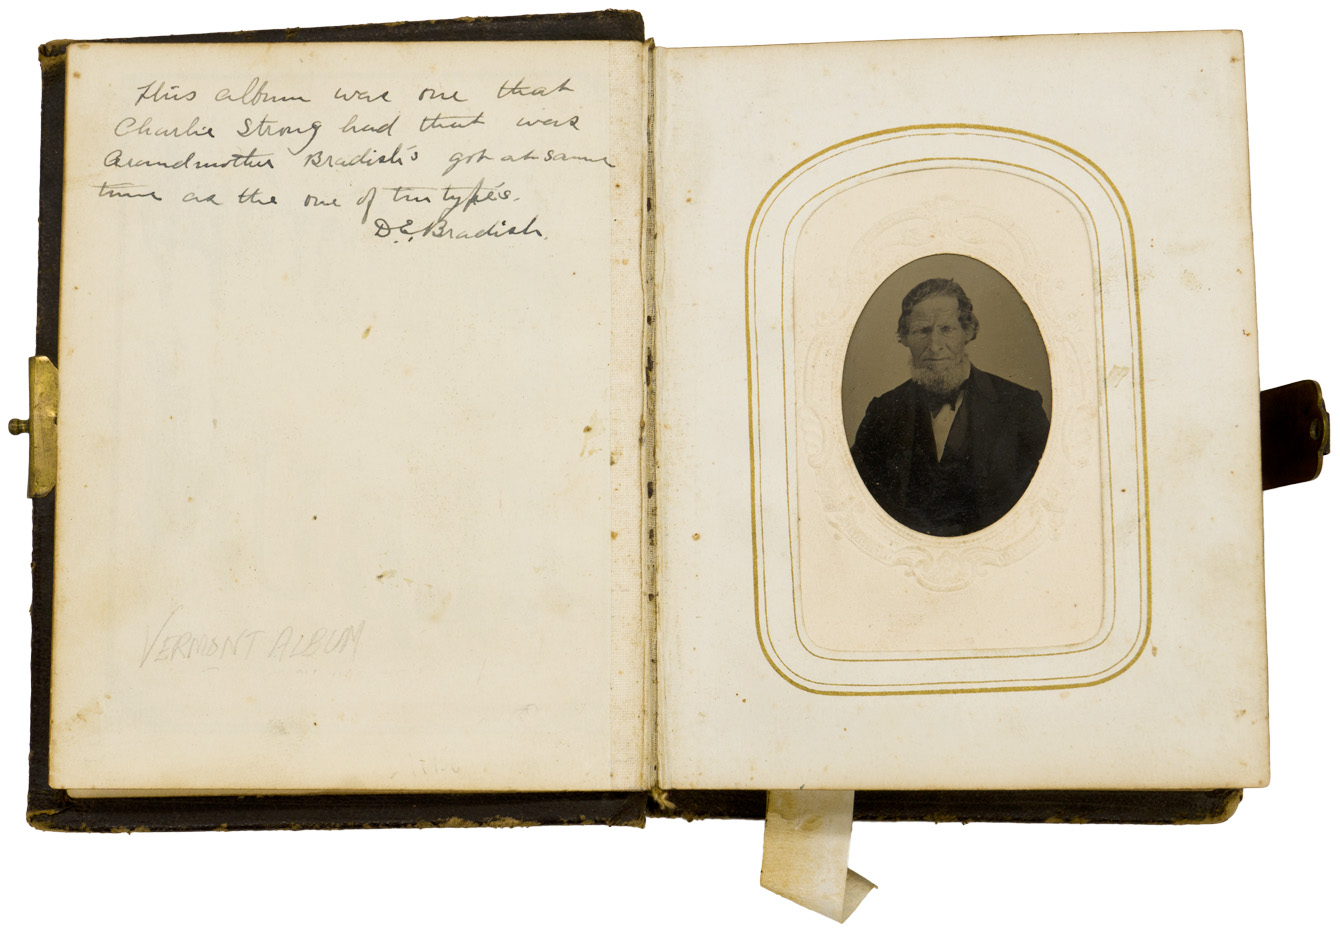 This album was one that
Charlie Strong had that was
Grandmother Bradish's got at same
time as the one of tin type's.
D.E. Bradish.
VERMONT ALBUM